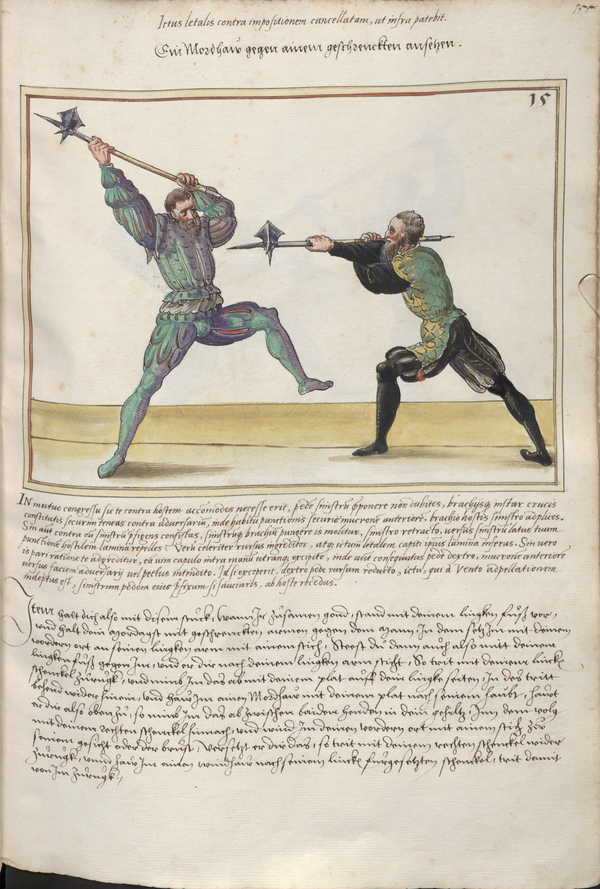 Ictus letalis contra impositionem cancellatam, ut infra patebit.
Ein Mordhaw gegen ainem geschrenckten ansehen.
15
IN mutuo congressu si te contra hostem accomodes necesse erit, pede sinistrum opponere non dubites, brachijsq; instar crucis
constitutis securim teneas contra adversariũ, inde habitu punctionis securis mucrone anteriore, brachio hostis sinistro adplices.
Sin aut contra eũ sinistrũ pũgens consistas, sinistrũq; brachiũ pungere is molitur, sinistro retracto, versus sinistrũ latus tuum
punctionẽ hostilem lamina repelles: Verũ celeriter rursus ingreditor, atq; ictum letalem capiti ipsius lamina inferas. Sin vero
is pari ratione te adgreditur, eã vim capulo intra manũ utranq; excipito, inde ubi consequutus pede dextro, mucrone anteriore
versus faciem adversarij vel pectus intendito. Id si exceperit, dextro pede rursum reducto, ictu, qui à Vento adpellationem
indeptus est, sinistrum pedem eius fixum si sauciaris, ab hoste recedas.
Item halt dich also mit disem stuck, Wann Ir zusamen gond, stand mit deinem lingken fuß vor,
und halt dein Mordagst mit geschrenckten armen gegen dem Mann, In dem setz Im mit deinem
vordern ort an seinen lingken arm mit ainem stich, Steest du dann auch also mitt deinem
lingken fuß gegen Im, und er dir nach deinem lingken arm sticht, So trit mit deinem lincken
schenckel zurugk, und nim Im das ab mit deinem plat auff dein lingke seiten, In des tritt
behend wider hinein, und haw Im ainen Mordhaw mit deinem plat nach seinem haubt, Hawt
er dir also oben zu, so nim Im das ab zwischen baiden henden in dein gehiltz, Inn dem volg
mit deinem rechten schenckel hinnach, und wind Im deinen vordern ort mit ainem stich zu
seinem gesicht oder der brust, Versetzt er dir das, so trit mit deinem rechten schenckel wider
zurugk, unnd haw Im ainen windhaw nach seinem lincken furgesetzten schenckel, trit damit
von Im zurugk.